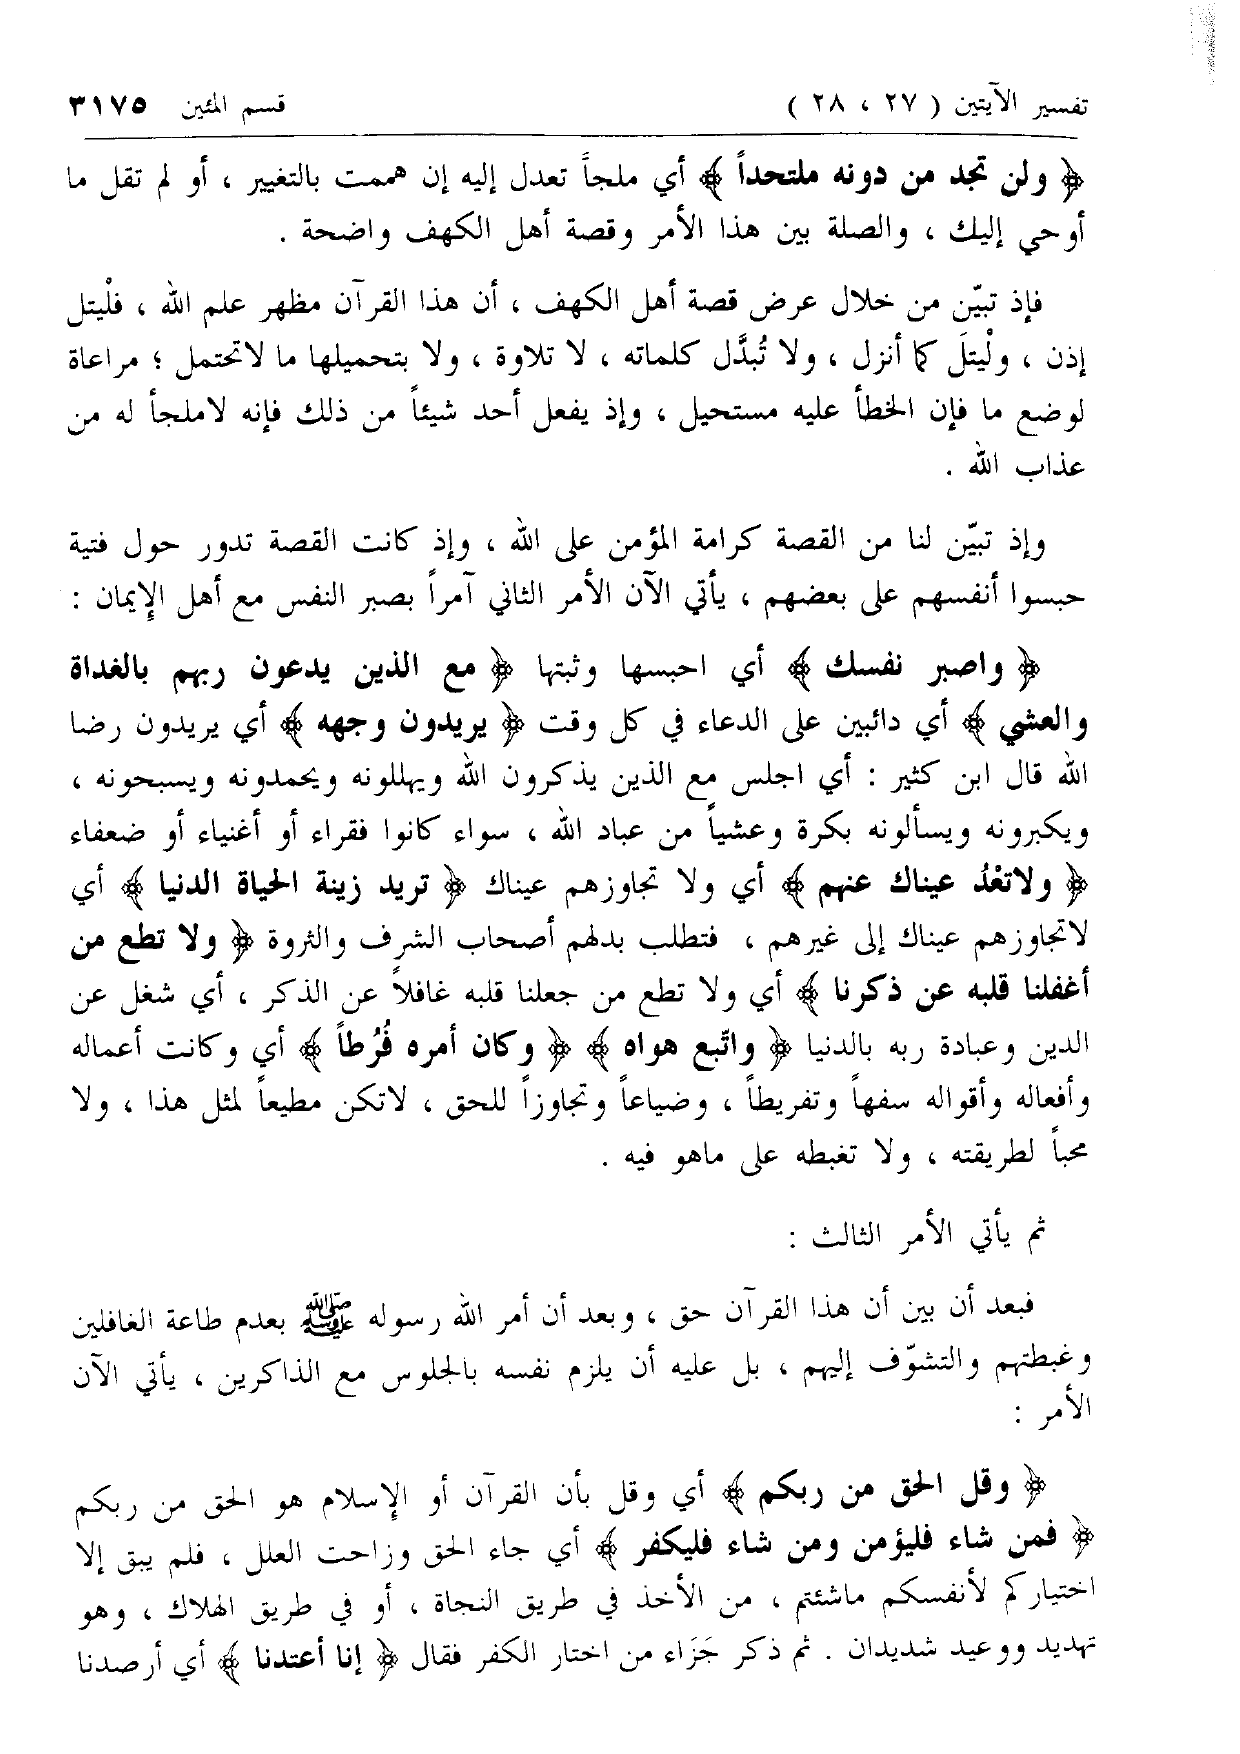 تفسير الآيتين ( ٢٧ ، ٢٨ ) قسم المئين ٣١٧٥
﴿ ولن تجد من دونه ملتحداً ﴾ أي ملجأً تعدل إليه إن هممت بالتغيير ، أو لم تقل ما
أوحي إليك ، والصلة بين هذا الأمر وقصة أهل الكهف واضحة .
فإذ تبيّن من خلال عرض قصة أهل الكهف ، أن هذا القرآن مظهر علم الله ، فلْيتل
إذن ، ولْيتلَ كما أنزل ، ولا تُبدَّل كلماته ، لا تلاوة ، ولا بتحميلها ما لاتحتمل ؛ مراعاة
لوضع ما فإن الخطأ عليه مستحيل ، وإذ يفعل أحد شيئاً من ذلك فإنه لاملجأ له من
عذاب الله .
وإذ تبيّن لنا من القصة كرامة المؤمن على الله ، وإذ كانت القصة تدور حول فتية
حبسوا أنفسهم على بعضهم ، يأتي الآن الأمر الثاني آمراً بصبر النفس مع أهل الإيمان :
﴿ واصبر نفسك ﴾ أي احبسها وثبتها ﴿ مع الذين يدعون ربهم بالغداة
والعشي ﴾ أي دائبين على الدعاء في كل وقت ﴿ يريدون وجهه ﴾ أي يريدون رضا
الله قال ابن كثير : أي اجلس مع الذين يذكرون الله ويهللونه ويحمدونه ويسبحونه ،
ويكبرونه ويسألونه بكرة وعشياً من عباد الله ، سواء كانوا فقراء أو أغنياء أو ضعفاء
﴿ ولاتعْدُ عيناك عنهم ﴾ أي ولا تجاوزهم عيناك ﴿ تريد زينة الحياة الدنيا ﴾ أي
لاتجاوزهم عيناك إلى غيرهم ، فتطلب بدلهم أصحاب الشرف والثروة ﴿ ولا تطع من
أغفلنا قلبه عن ذكرنا ﴾ أي ولا تطع من جعلنا قلبه غافلاً عن الذكر ، أي شغل عن
الدين وعبادة ربه بالدنيا ﴿ واتّبع هواه ﴾ ﴿ وكان أمره فُرُطاً ﴾ أي وكانت أعماله
وأفعاله وأقواله سفهاً وتفريطاً ، وضياعاً وتجاوزاً للحق ، لاتكن مطيعاً لمثل هذا ، ولا
محباً لطريقته ، ولا تغبطه على ماهو فيه .
ثم يأتي الأمر الثالث :
فبعد أن بين أن هذا القرآن حق ، وبعد أن أمر الله رسوله ﷺ بعدم طاعة الغافلين
وغبطتهم والتشوّف إليهم ، بل عليه أن يلزم نفسه بالجلوس مع الذاكرين ، يأتي الآن
الأمر :
﴿ وقل الحق من ربكم ﴾ أي وقل بأن القرآن أو الإسلام هو الحق من ربكم
﴿ فمن شاء فليؤمن ومن شاء فليكفر ﴾ أي جاء الحق وزاحت العلل ، فلم يبق إلا
اختياركم لأنفسكم ماشئتم ، من الأخذ في طريق النجاة ، أو في طريق الهلاك ، وهو
تهديد ووعيد شديدان . ثم ذكر جَزَاء من اختار الكفر فقال ﴿ إنا أعتدنا ﴾ أي أرصدنا